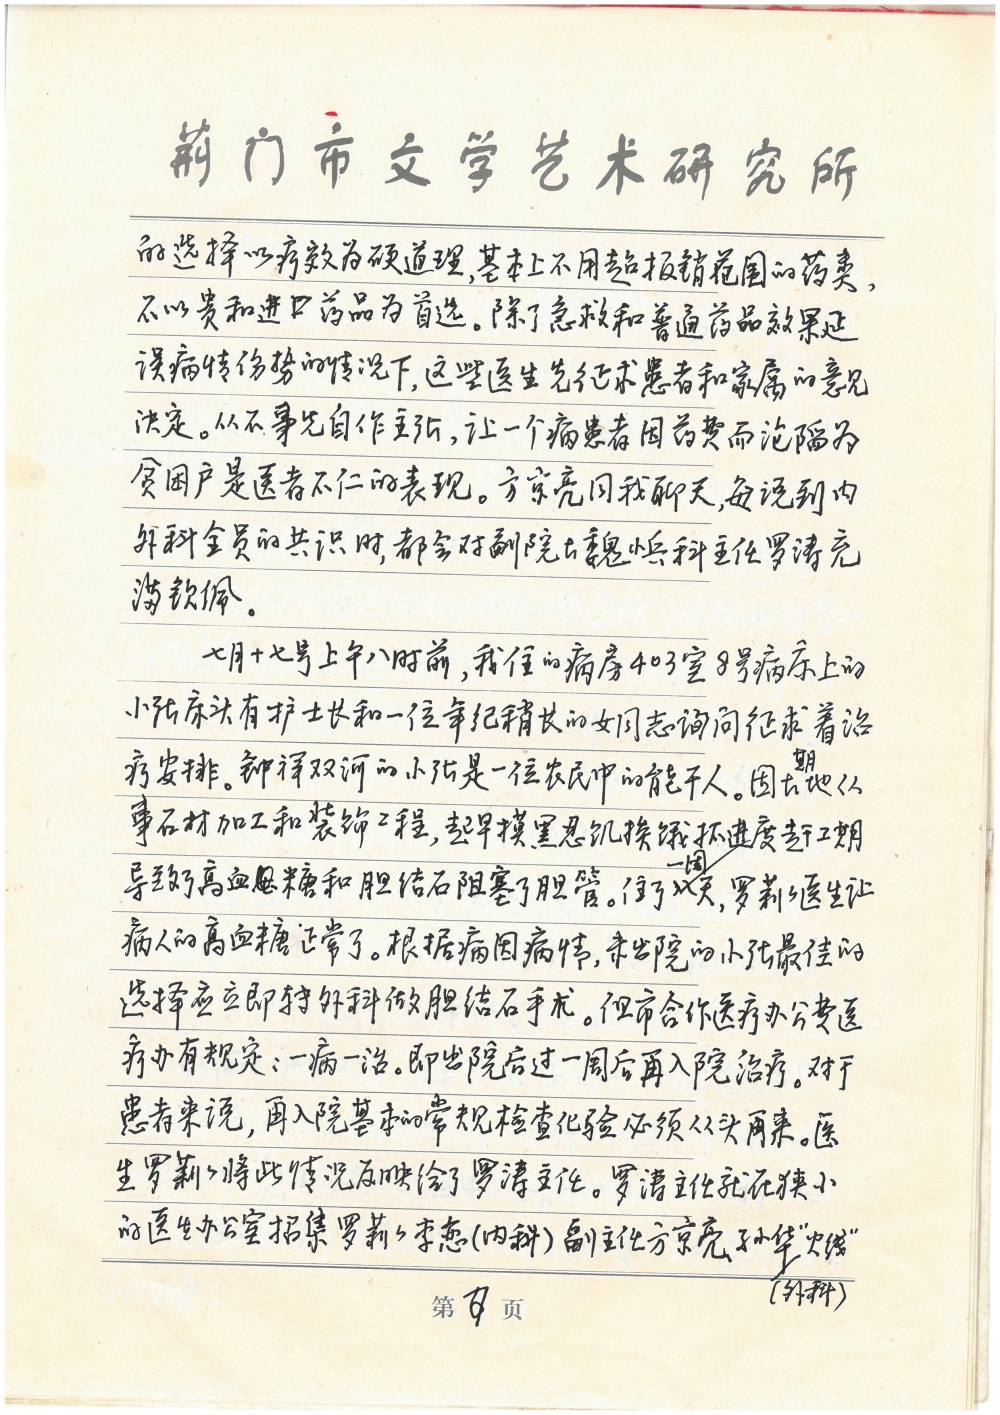 荆门市文学艺术研究所
的选择以疗效为硬道理,基本上不用超出报销范围的药类,
不以贵和进口药品为首选。除了急救和普通药品效果延
误病情伤势的情况下,这些医生先征求患者和家属的意见
决定。从不事先自作主张,让一个病患者因药费而沦陷为
贫困户是医者不仁的表现。方京亮同我聊天,每说到内
外科全员的共识时,都会对副院长魏小兵科主任罗涛充
满钦佩。
七月十七号上午八时前,我住的病房403室8号病床上的
小张床头有护士长和一位年纪稍长的女同志询问征求着治
疗安排。钟祥双河的小张是一位农民中的能干人。因长期地从
事石材加工和装饰工程,起早摸黑忍饥挨饿抓进度赶工期
导致了高血糖和胆结石阻塞了胆管。住了一周,罗莉莉医生让
病人的高血糖正常了。根据病因病情,未出院的小张最佳的
选择应立即转外科做胆结石手术。但市合作医疗办公费医
疗办有规定:一病一治。即出院后过一周后再入院治疗。对于
患者来说,再入院基本的常规检查化验必须从头再来。医
生罗莉莉将此情况反映给了罗涛主任。罗涛主任就在狭小
的医生办公室招集罗莉莉李恋(内科)副主任方京亮、孙华"火线"
(外科)
第 页